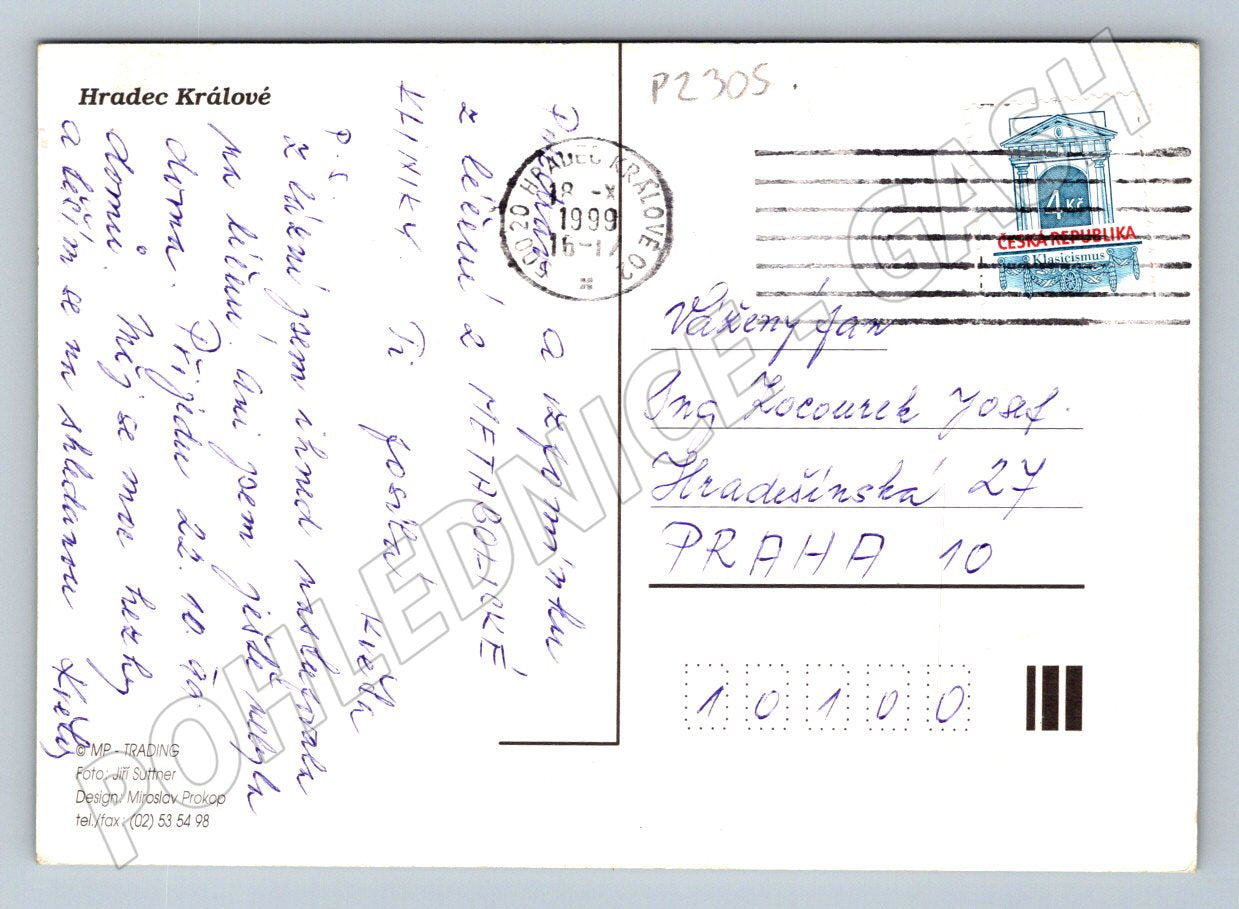 Hradec Králové
P2305.
500 20 HRADEC KRÁLOVÉ 02
18.-X
1999
16-17
4 Kč
ČESKÁ REPUBLIKA
Klasicismus
a vzpomínku
z léčení z METABOLICKÉ
KLINIKY. Ti
posílá Květa
P.S.
Z lázní jsem ihned nastoupila
na léčení, ani jsem ještě nebyla
doma. Přijedu 22. 10. 99
domů. Měj se moc hezky
a těším se na shledanou Květa
Vážený pan
Ing Kocourek Josef.
Hradešínská 27
PRAHA 10
10100
© MP - TRADING
Foto: Jiří Suttner
Design: Miroslav Prokop
tel./fax: (02) 53 54 98
POHLEDNICE - GASH